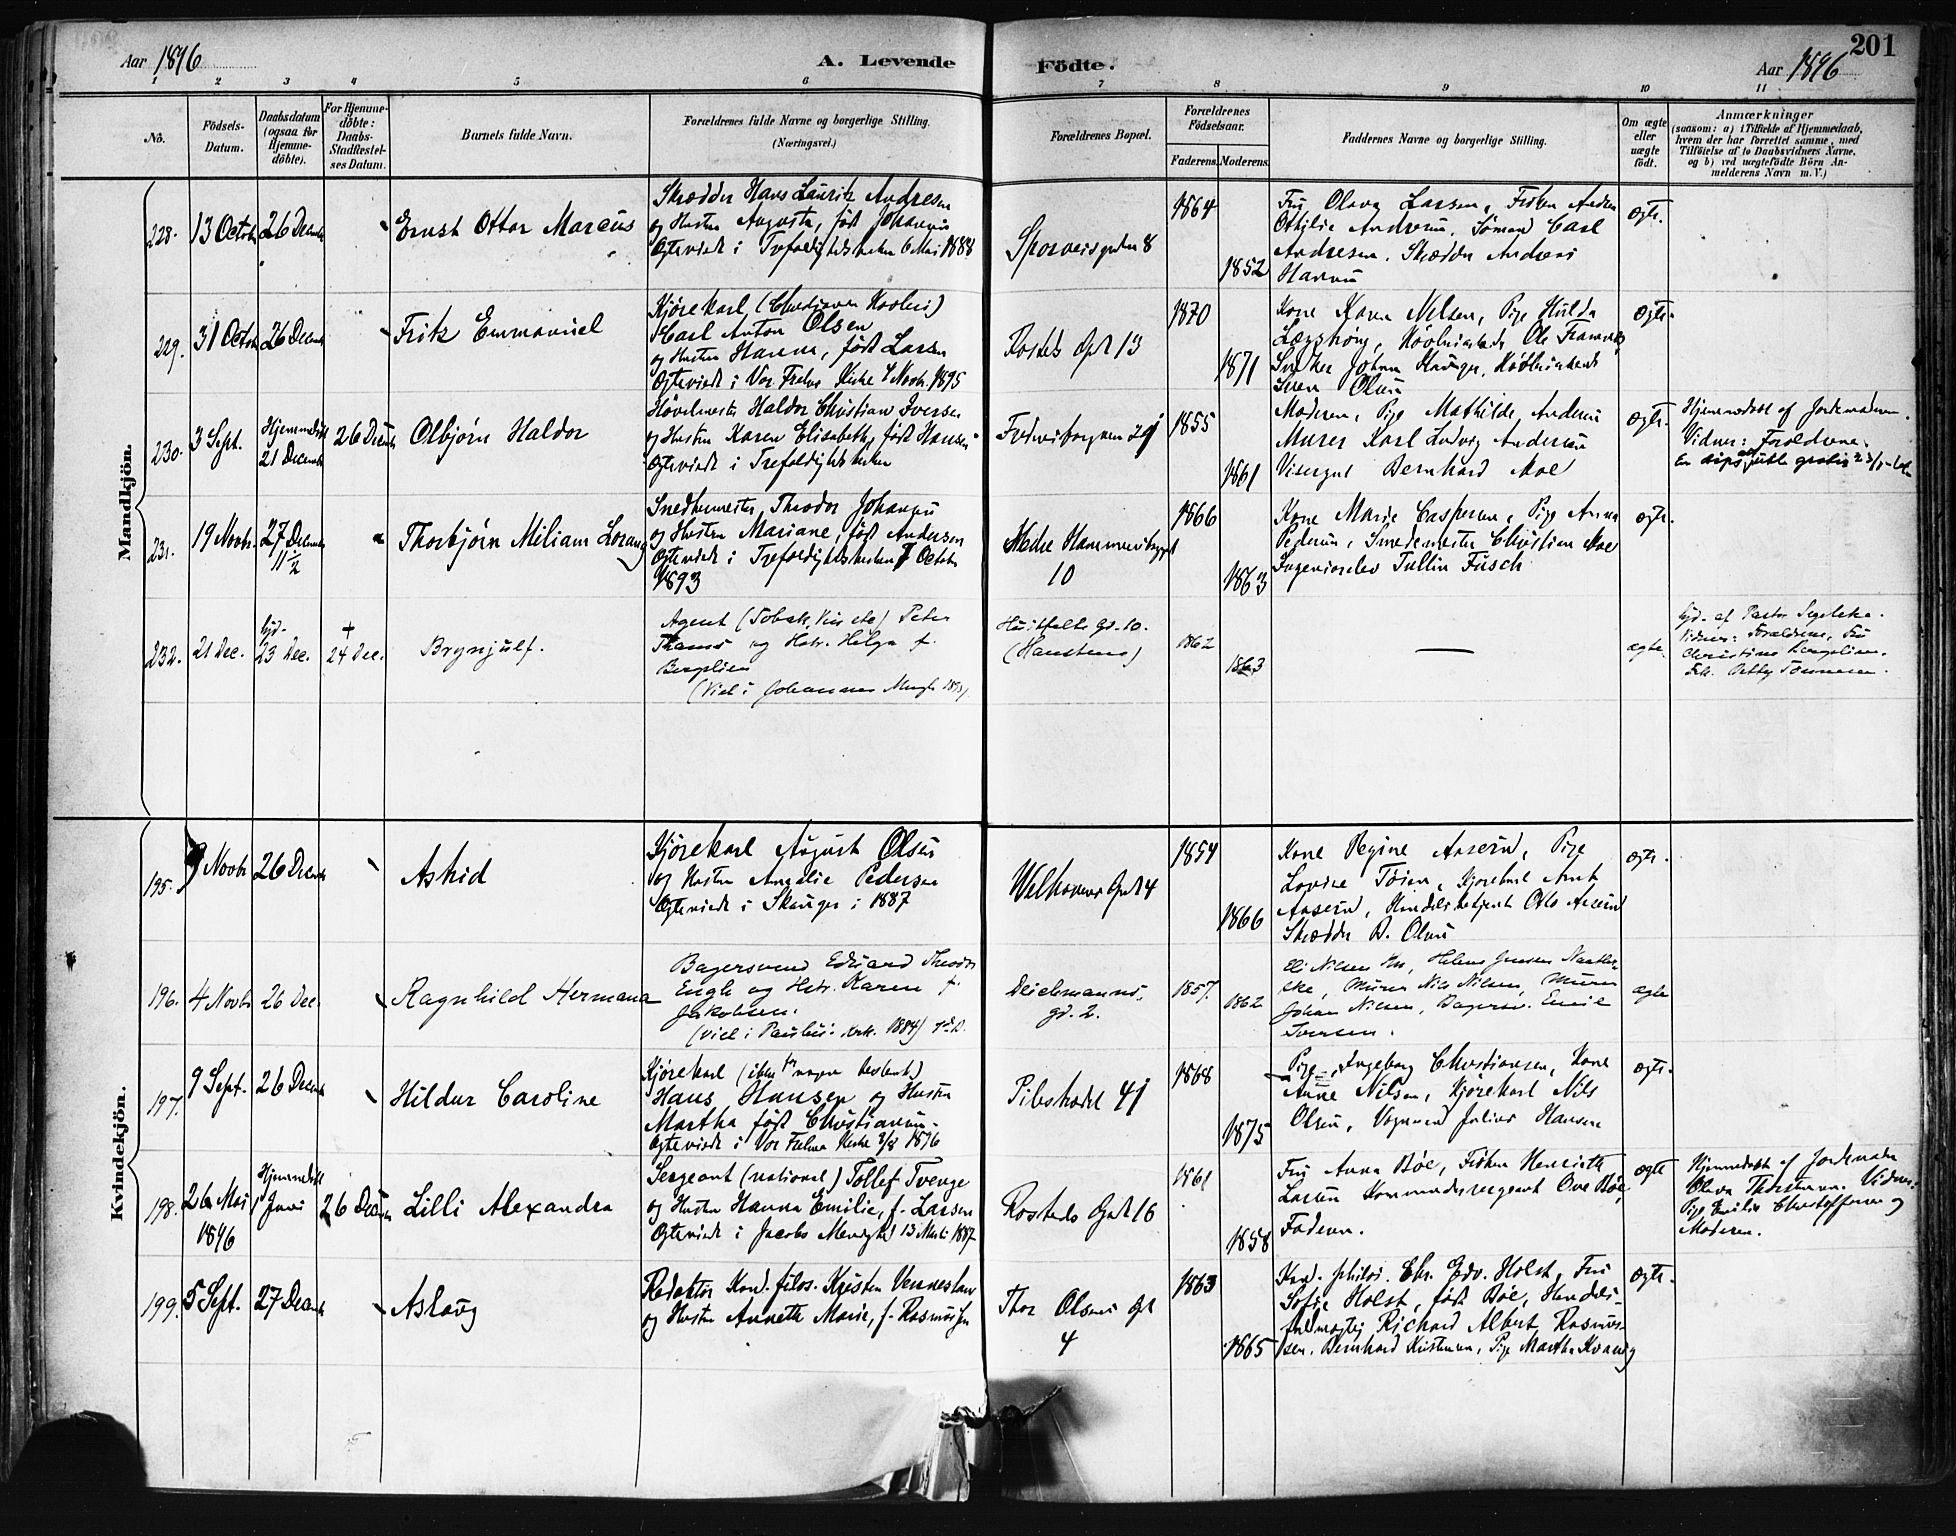 201
Aar 1896
A. Levende Födte.
Aar 1896
1 2 3 4 5 6 7 8 9 10 11
No.
Födsels-
Datum.
Daabsdatum
(ogsaa for
Hjemme-
döbte).
For Hjemme-
döbte:
Daabs-
Stadfæstel-
ses Datum.
Barnets fulde Navn.
Forældrenes fulde Navne og borgerlige Stilling.
(Næringsvei.)
Forældrenes Bopæl.
Forældrenes
Födselsaar.
Faderens. Moderens.
Faddernes Navne og borgerlige Stilling.
Om ægte
eller
uægte
födt.
Anmærkninger
(saasom: a) i Tilfælde af Hjemmedaab,
hvem der har forrettet samme, med
Tilföielse af to Daabsvidners Navne,
og b) ved uægtefödte Börn An-
melderens Navn m. V.)
Mandkjön.
228. 13 Octob 26 Decemb
Ernst Ottar Marcus
Skrædder Hans Lauritz Andresen
og Hustru Augusta, født Johansen
Ægteviede i Trefoldighedskirken 6 Mai 1888
Sporveisgaden 8
1864
1852
Fru Olava Larsen, Frøken Andrea
Othilie Andresen, Sømand Carl
Andresen, Skrædder Andreas
Hansen
ægte.
229. 31 Octob 26 Decemb
Fritz Emmanuel
Kjørekarl
Carl Anton Olsen
og Hustru Hanna, født Larsen
Ægteviede i Vor Frelsers Kirke 4 Novb. 1895
Rosteds Gad 13
1870
1871
Kone Karen Nilsen, Pige Hulda
Olsen
ægte.
230. 3 Sept. Hjemmedøbt
21 Decemb
26 Decemb
Olbjørn Haldor
Høvelmester Haldor Christian Iversen
og Hustru Karen Elisabeth, født Hansen
Ægteviede i Trefoldighedskirken
1855
1861
Moderen, Pige Mathilde Andersen
Murer Karl Ludvig Andersen
Visergut Bernhard Moe
ægte.
Hjemmedøbt af Jordemoderen.
Vidner: Forældrene.
231. 19 Novb. 27 Decemb
11½
Thorbjørn Miliam Lorang
Snedkermester Theodor Johansen
og Hustru Mariane, født Andersen
Ægteviede i Trefoldighedskirken 7 October
1893
10
1866
1863
Kone Marie Caspersen, Pige Anna
Pedersen, Smedemester Christian Moe
Ingeniørelev Tullin Fusch
ægte.
232. 21 Dec. hjd.
23 Dec.
+
24 Dec.
Brynjulf.
Agent (Tobak, Vin etc) Peter
Thams og Hstr. Helga f.
Bengelsen
(Viel i Johannes Mengh
Huitfeldts Gd. 10.
(Hansteens)
1862
1863
—
ægte.
hjd. af Pastor Segelcke.
Vidner: Forældrene, Fru
Christine Bengelsen,
Frk. Betty Tønnesen.
Kvindekjön.
195. 9 Novb 26 Decemb
Astrid
Kjørekarl August Olsen
og Hustru Amalie Pedersen
Ægteviede i Skauger i 1887
Welhavens Gad 4
1854
1866
Kone Regine Aaserud, Pige
Lovise Tøien, Kjørekarl Ant
Aaserud, Handelsbetjent Otto Aaserud
Skrædder B. Olsen
ægte.
196. 4 Novb 26 Dec.
Ragnhild Hermana
Bagersvend Edvard Theodor
Engh og Hstr. Karen f.
Jakobsen.
(viel i Paulus kirk. 1884)
Deichmanns.
gd. 2.
1857.
1862
Eli Nilsen
Johan Nilsen, Bagersv. Emil
Iversen.
ægte
197. 9 Sept. 26 Decemb
Hildur Caroline
Kjørekarl (ikke for nogen bestemt)
Hans Hansen og Hustru
Martha født Christiansen.
Ægteviede i Vor Frelsers Kirke 3/8 1896
Pilestrædet 41
1868
1875
Pige Ingeborg Christiansen, Kone
Anne Nilsen, Kjørekarl Nils
Olsen, Vognmand Julius Hansen
ægte.
198. 26 Mai
1896
Hjemmedøbt
Juni
26 Decemb
Lilli Alexandra
Sergeant (national) Tollef Tvenge
og Hustru Hanna Emilie, f. Larsen
Ægteviede i Jacobs Menighed 13 Marts 1887
Rosteds Gad 16
1861
1858
Fru Anna Bøe, Frøken Henriette
Larsen Kommandersergeant Ove Bøe,
Faderen.
ægte
Hjemmedøbt af Jordemoder
Olava Thorstensen. Vidner:
Pige Emilie Christoffersen og
Moderen.
199. 5 Sept. 27 Decemb
Aslaug
Redaktør Kand. filos. Kristen
og Hustru Annette Marie, f. Rasmussen
Thor Olsens Gd
4
1863
1865
Kand. philos. Chr. Edv. Holst, Fru
Sofie Holst, født Bøe, Handels-
fuldmægtig Richard Albert Rasmus-
sen. Bernhard Kristensen, Pige Martha Kvarvig
ægte.